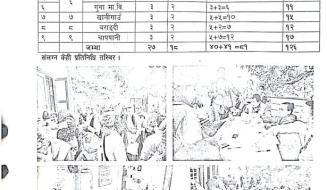 ६ ६ गुंगा मा.वि. ३ २ ३+३=६ ११
७ ७ खानीगाउँ ३ २ ५+५=१० १५
८ ८ बराङ्दी ३ २ ५+२=७ १२
९ ९ चापपानी ३ २ ५+७=१२ १७
जम्मा २७ १८ ४०+४१ =८१ १२६
संलग्न केही प्रतिनिधि तस्बिर ।